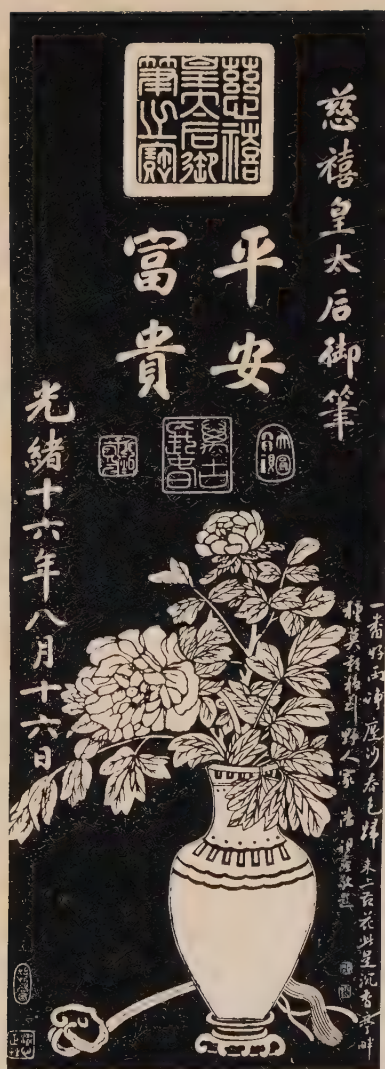 慈禧皇太后御筆
慈禧
皇太后御
筆之寶
平安
富貴
光緒十六年八月十六日
一番好雨净塵沙春色歸來上苑花此是沉香亭畔
種莫教移到野人家